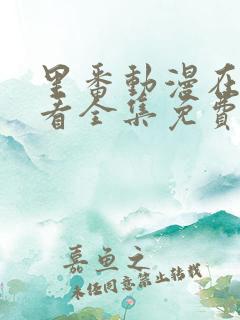 里番動漫在
看全集免費
嘉魚之
未经同意禁止转载